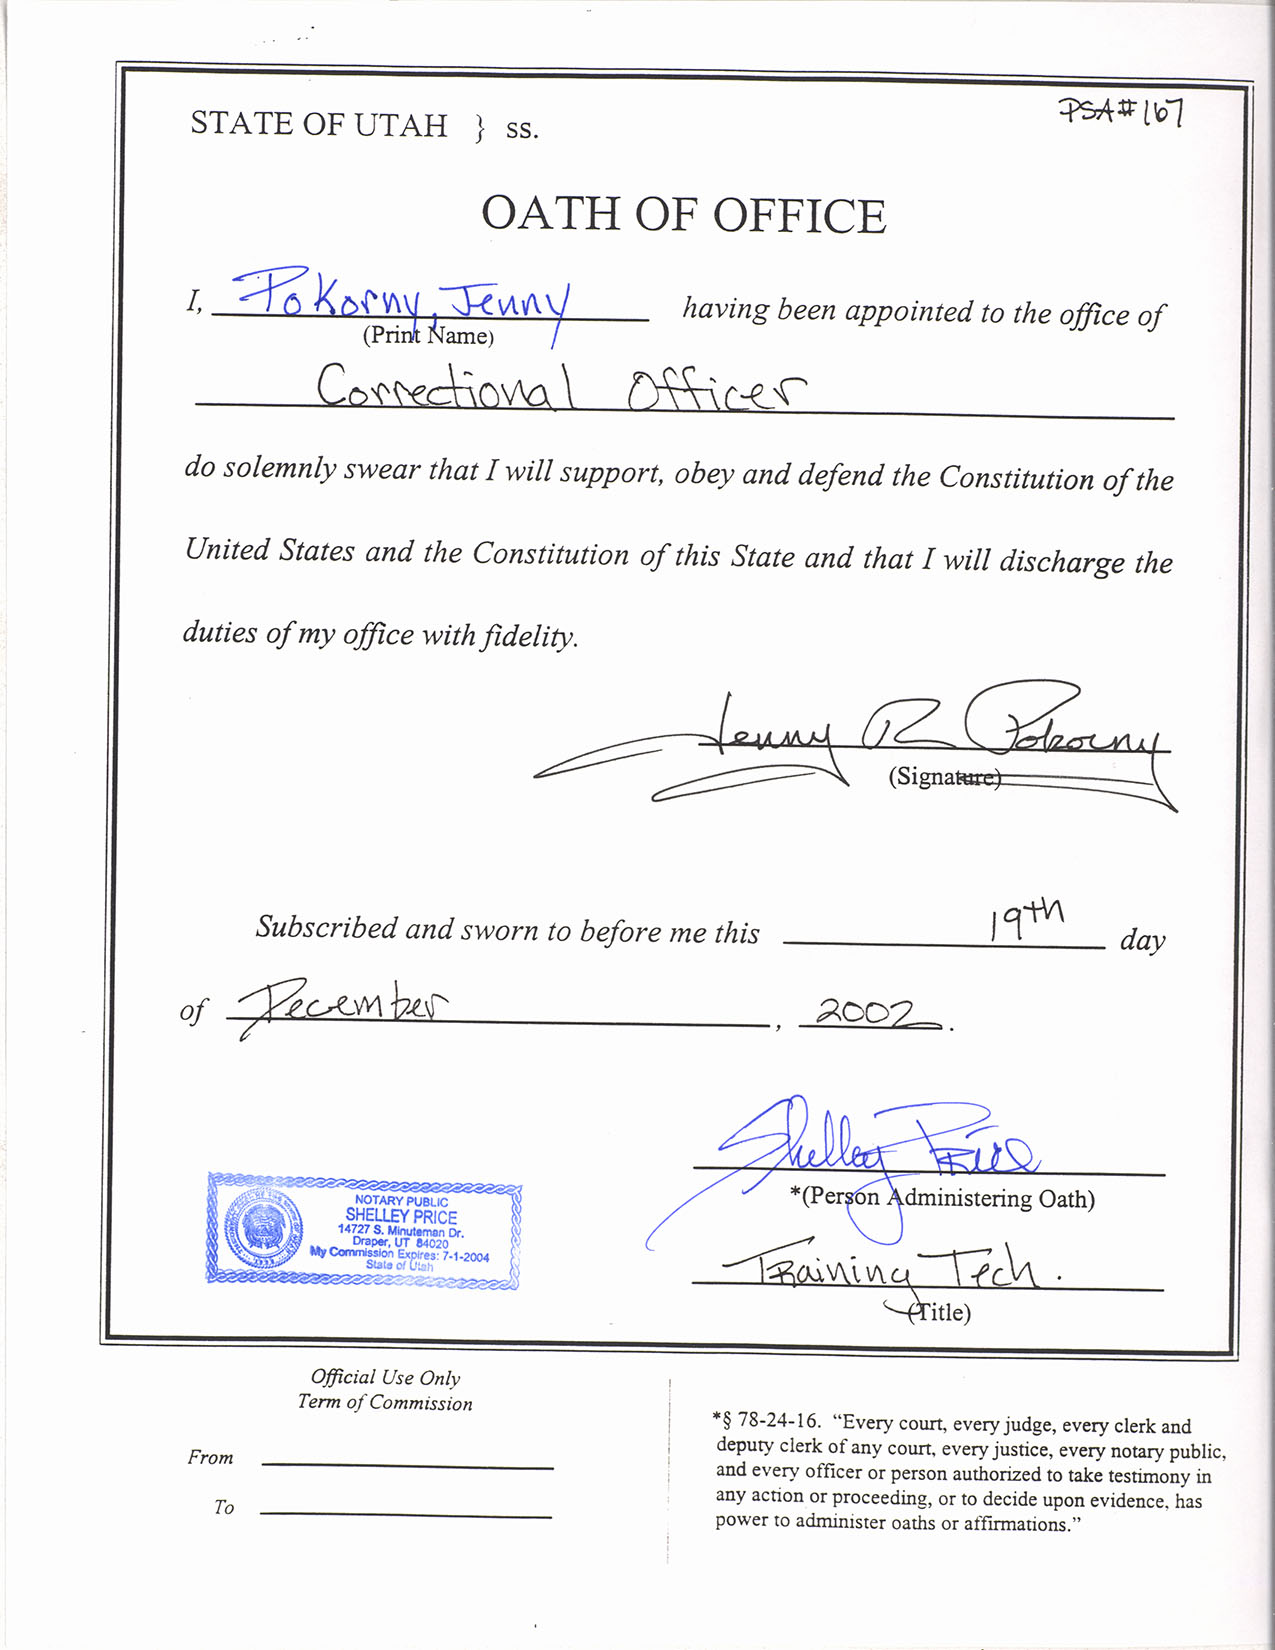 PSA#167
STATE OF UTAH } ss.
OATH OF OFFICE
I, Pokorny, Jenny having been appointed to the office of
(Print Name)
Correctional Officer
do solemnly swear that I will support, obey and defend the Constitution of the
United States and the Constitution of this State and that I will discharge the
duties of my office with fidelity.
Jenny R Pokorny
(Signature)
Subscribed and sworn to before me this 19th day
of December, 2002.
Shelley Price
*(Person Administering Oath)
Training Tech.
(Title)
NOTARY PUBLIC
SHELLEY PRICE
14727 S. Minuteman Dr.
Draper, UT 84020
My Commission Expires: 7-1-2004
State of Utah
Official Use Only
Term of Commission
From
To
*§ 78-24-16. “Every court, every judge, every clerk and
deputy clerk of any court, every justice, every notary public,
and every officer or person authorized to take testimony in
any action or proceeding, or to decide upon evidence, has
power to administer oaths or affirmations.”